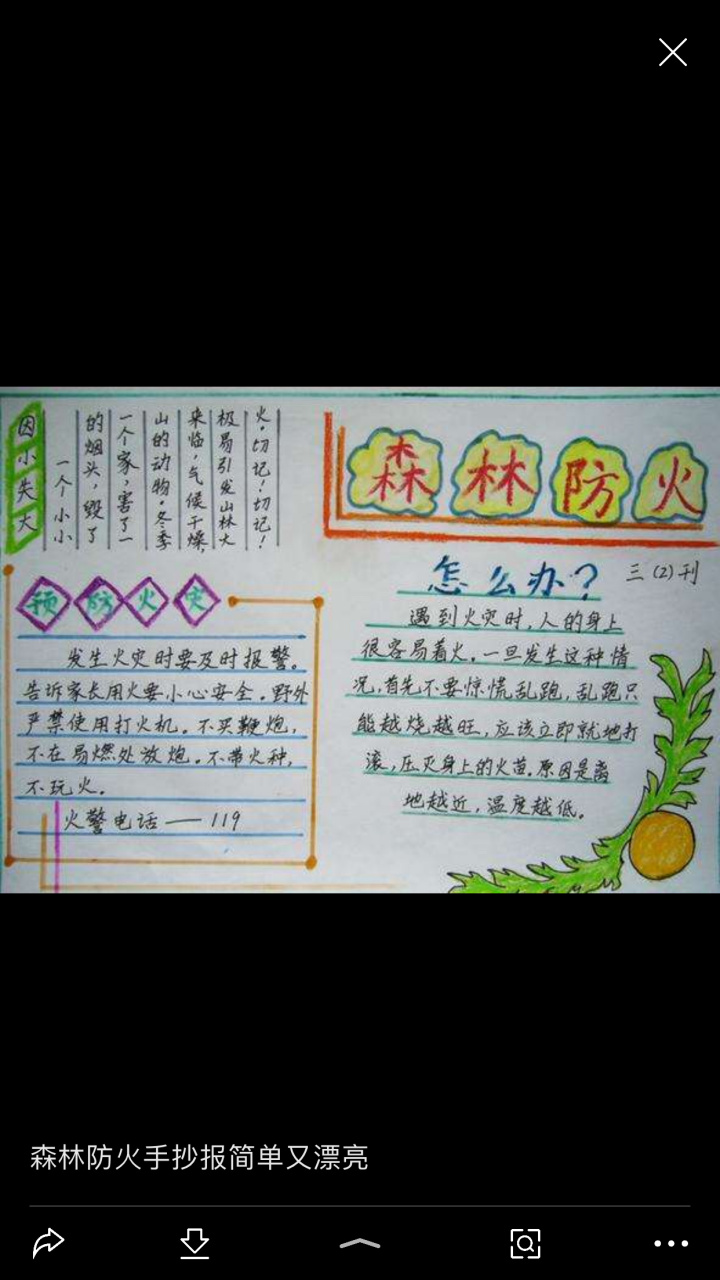 森林防火
三(2)刊
因小失大
一个小小
的烟头，毁了
一个家，害了一
山的动物。冬季
来临，气候干燥，
极易引发山林火
火。切记！切记！
预防火灾
发生火灾时要及时报警。
告诉家长用火要小心安全。野外
严禁使用打火机。不买鞭炮，
不在易燃处放炮。不带火种，
不玩火。
火警电话——119
怎么办？
遇到火灾时，人的身上
很容易着火。一旦发生这种情
况，首先不要惊慌乱跑，乱跑只
能越烧越旺，应该立即就地打
滚，压灭身上的火苗。原因是离
地越近，温度越低。
森林防火手抄报简单又漂亮